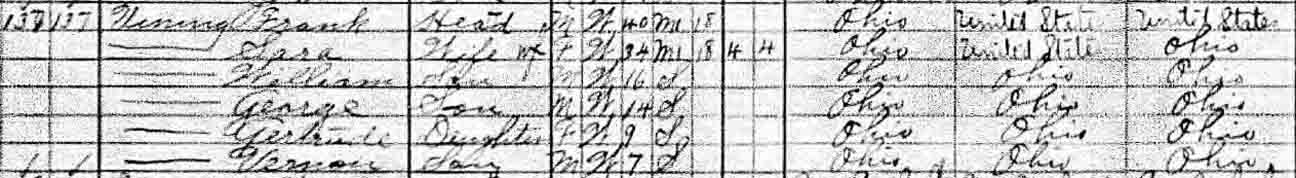 137 137 Wining Frank Head M W 40 M1 18 Ohio United State United States
Sara Wife F W 34 M1 18 4 4 Ohio United State Ohio
William Son M W 16 S Ohio Ohio Ohio
George Son M W 14 S Ohio Ohio Ohio
Gertrude Daughter F W 9 S Ohio Ohio Ohio
Vernon Son M W 7 S Ohio Ohio Ohio